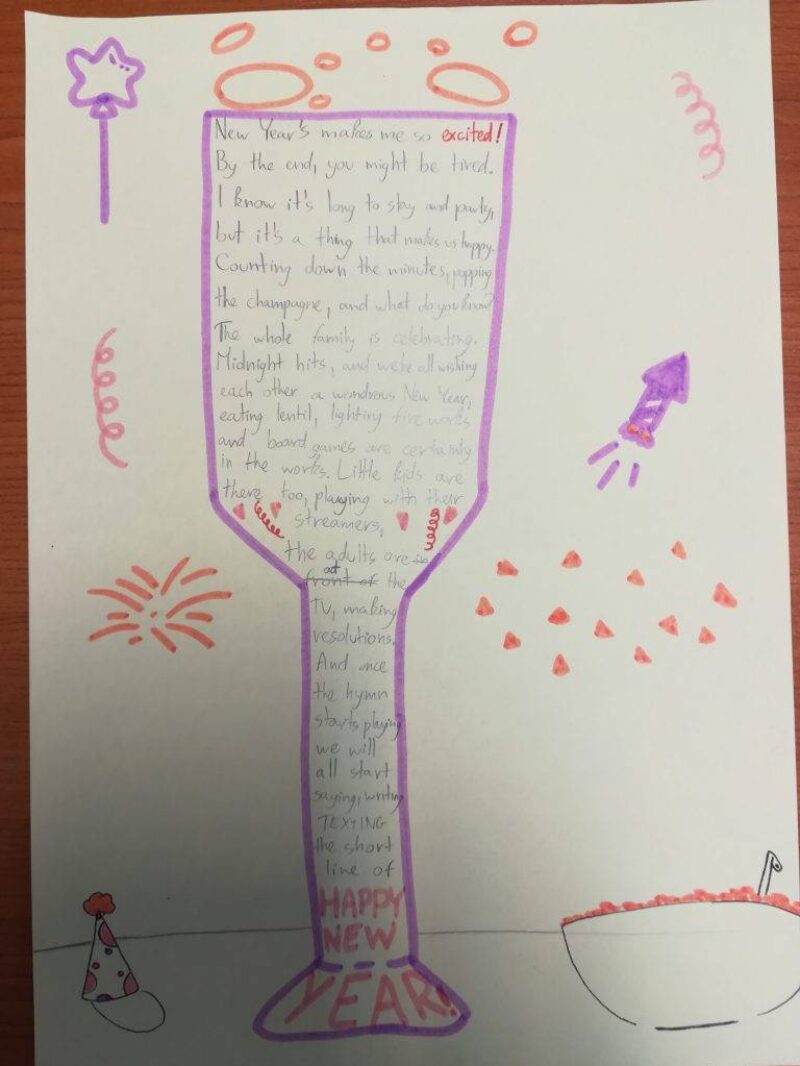 New Year's makes me so excited!
By the end, you might be tired.
I know it's long to stay and party,
but it's a thing that makes us happy.
Counting down the minutes, popping
the champagne, and what do you know?
The whole family is celebrating.
Midnight hits, and we're all wishing
each other a wondrous New Year,
eating lentil, lighting fireworks
and board games are certainly
in the works. Little kids are
there too, playing with their
streamers,
the adults are
at
front of the
TV, making
resolutions.
And once
the hymn
starts playing
we will
all start
saying, writing
TEXTING
the short
line of
HAPPY
NEW
YEAR!